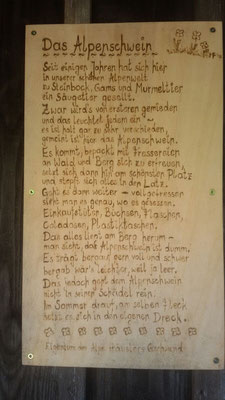 Das Alpenschwein
Seit einigen Jahren hat sich hier
in unserer schönen Alpenwelt
zu Steinbock, Gams und Murmeltier
ein Säugetier gesellt.
Zwar wird's von ersteren gemieden
und das leuchtet jedem ein
es ist halt gar zu sehr verschieden,
gemeint ist hier das Alpenschwein.
Es kommt, bepackt mit Fressereien
an Wald und Berg sich zu erfreuen,
setzt sich dann hin am schönsten Platz
und stopft sich alles in den Latz.
Geht es dann weiter - vollgefressen
sieht man es genau, wo es gesessen.
Einkaufstüten, Büchsen, Flaschen,
Coladosen, Plastiktaschen.
Das alles liegt am Berg herum -
man sieht, das Alpenschwein ist dumm.
Es trägt bergauf gern voll und schwer
bergab wär's leichter, weil ja leer.
Das jedoch geht dem Alpenschwein
nicht in seinen Schädel rein.
Im Sommer drauf, am selben Fleck
hockt es sich in den eigenen Dreck.